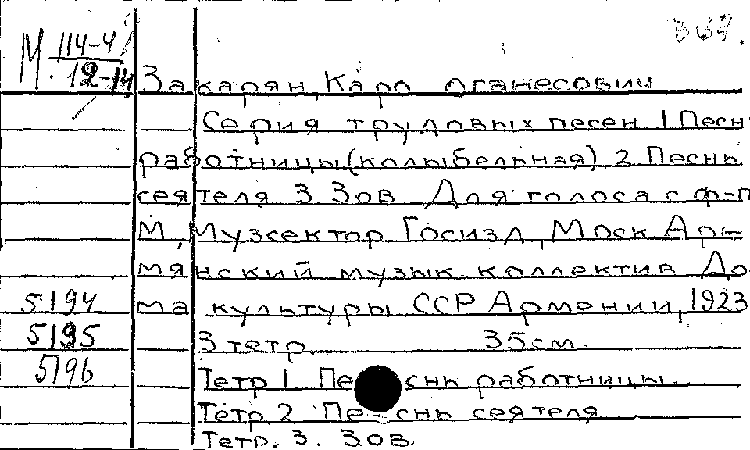 М 114-4
12-14
Закарян, Каро Оганесович
Серия трудовых песен 1 Песнь
работницы (колыбельная) 2. Песнь
сеятеля 3 Зов Для голоса с ф-п
М, Музсектор Госизд, Моск Ар-
мянский музык коллектив До
ма культуры ССР Армении, 1923
3 тетр. 35 см.
5194
5195
5196
Тетр 1 Песнь работницы.
Тетр 2 Песнь сеятеля
Тетр. 3. Зов.